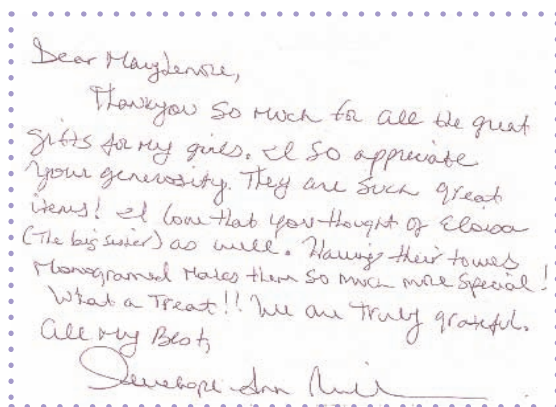 Dear MaryLenore,
Thankyou so much for all the great
gifts for my girls. I so appreciate
your generosity. They are such great
items! I love that you thought of Eloisa
(The big sister) as well. Having their towels
Monogramed makes them so much more special!
What a Treat!! We are truly grateful.
All My Best,
Penelope Ann